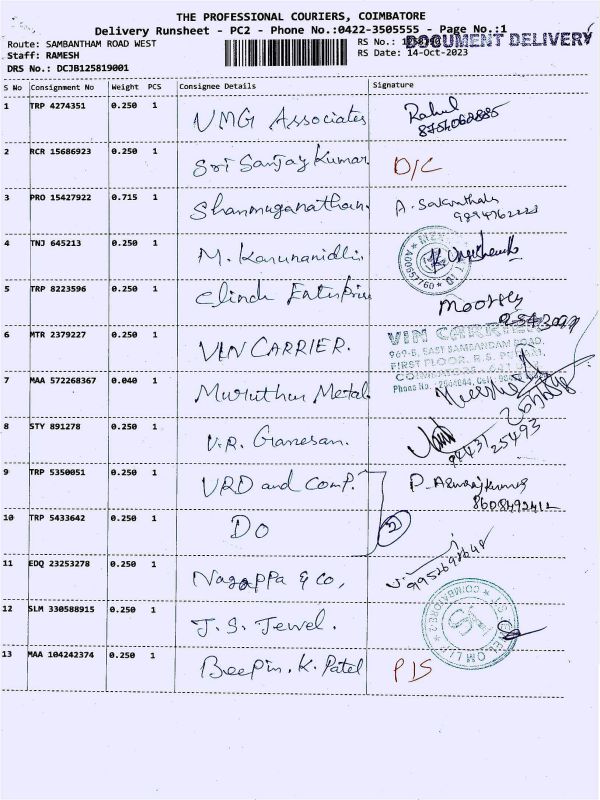 THE PROFESSIONAL COURIERS, COIMBATORE
Delivery Runsheet - PC2 - Phone No.:0422-3505555 - Page No.:1
Route: SAMBANTHAM ROAD WEST
RS No.:
DOCUMENT DELIVERY
Staff: RAMESH
RS Date: 14-Oct-2023
DRS No.: DCJB125819001
S No Consignment No Weight PCS Consignee Details Signature
1 TRP 4274351 0.250 1 VMG Associates Rahul
8754062885
2 RCR 15686923 0.250 1 Sri Sanjay Kumar D/C
3 PRO 15427922 0.715 1 Shanmuganathan. A.
4 TNJ 645213 0.250 1 M. Karunanidhi
5 TRP 8223596 0.250 1 Enterprise
6 MTR 2379227 0.250 1 VIN CARRIER.
VIN CARRIER
969-B, EAST SAMBANDAM ROAD,
FIRST FLOOR, R.S. PURAM,
7 MAA 572268367 0.040 1 Metal
8 STY 891278 0.250 1 V.R. Ganesan. 94431 25493
9 TRP 5350051 0.250 1 VRD and Comp. P.
8608492412
10 TRP 5433642 0.250 1 Do 2
11 EDQ 23253278 0.250 1 Nagappa & Co,
12 SLM 330588915 0.250 1 J.S. Jewel.
13 MAA 104242374 0.250 1 Beepin. K. Patel